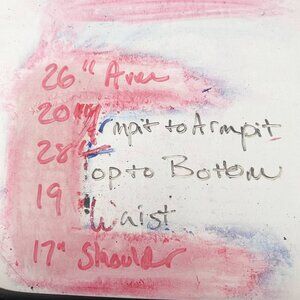 26" Arm
20" Armpit to Armpit
28" Top to Bottom
19" Waist
17" Shoulder